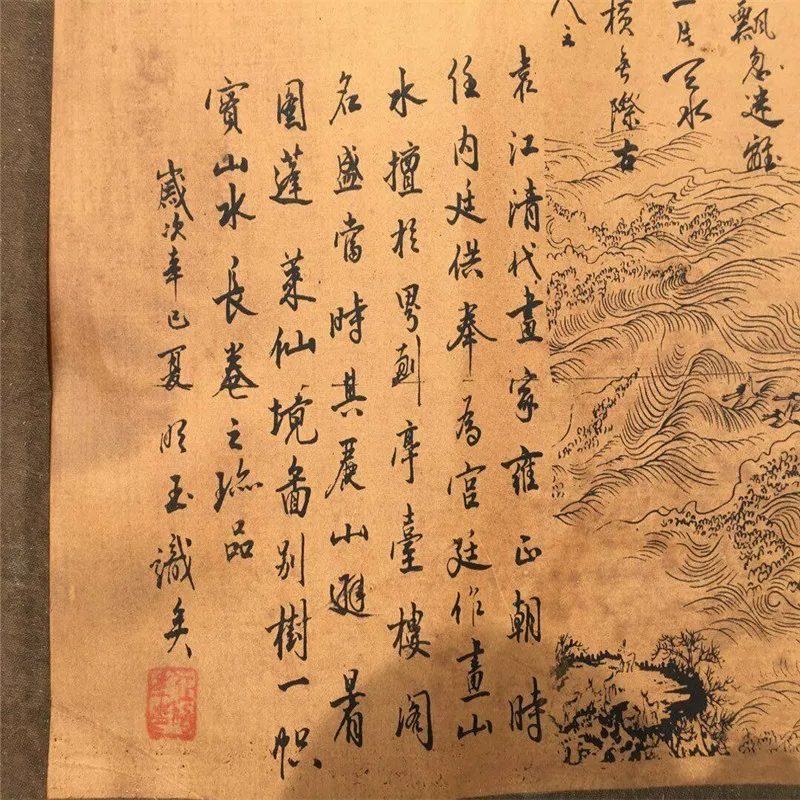 飄忽迷離
一片天水
橫無際古
人云
袁江清代畫家雍正朝時
任内廷供奉為宮廷作畫山
水擅於界劃亭臺樓閣
名盛當時其驪山避暑
圖蓬萊仙境圖別樹一幟
實山水長卷之珍品
歲次辛巳夏明玉識矣